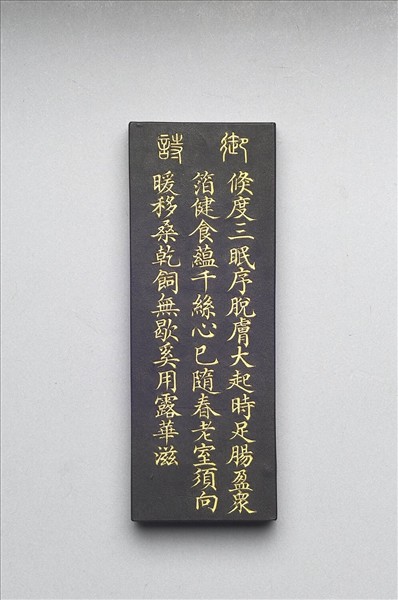 御詩
倏度三眠序脫膚大起時足腸盈衆
箔健食蘊千絲心已隨春老室須向
暖移桑乾飼無歇奚用露華滋